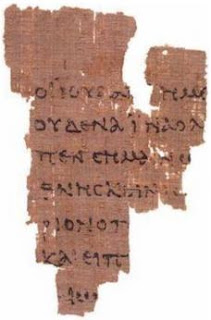 ΟΙΙΟΥΔΑΙ ΗΜΕ
ΟΥΔΕΝΑΪΝΑΟΛ
ΠΕΝCΗΜΑΙΝΩ
ΘΝΗCΚΕΙΝ
ΡΙΟΝΟΠ
ΚΑΙΕΙΠ